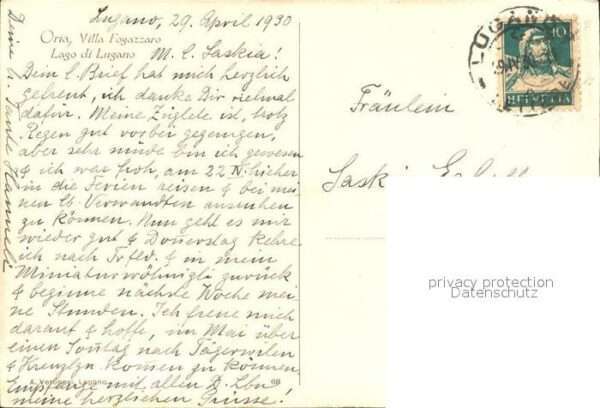 Lugano, 29. April 1930
Oria, Villa Fogazzaro
Lago di Lugano
M. l. Saskia!
Dein l. Brief hat mich herzlich
gefreut, ich danke Dir vielmal
dafür. Meine Züglete ist, trotz
Regen gut vorbei gegangen,
aber sehr müde bin ich gewesen
& ich war froh, am 22 IV. hieher
in die Ferien reisen & bei mei-
nen lb. Verwandten ausruhen
zu können. Nun geht es mir
wieder gut & Donerstag kehre
ich nach Frfld. & in mein
Miniaturwöhnigli zurück
& beginne nächste Woche mei-
ne Stunden. Ich freue mich
darauf & hoffe, im Mai über
einen Sonntag nach Tägerwilen
& Kreuzlgn kommen zu können.
Empfange mit allen D. Lbn
meine herzlichen Grüsse!
Deine lb. Tante Hanneli
Lugano
98
LUGANO
10
HELVETIA
Fräulein
Saskia
privacy protection
Datenschutz